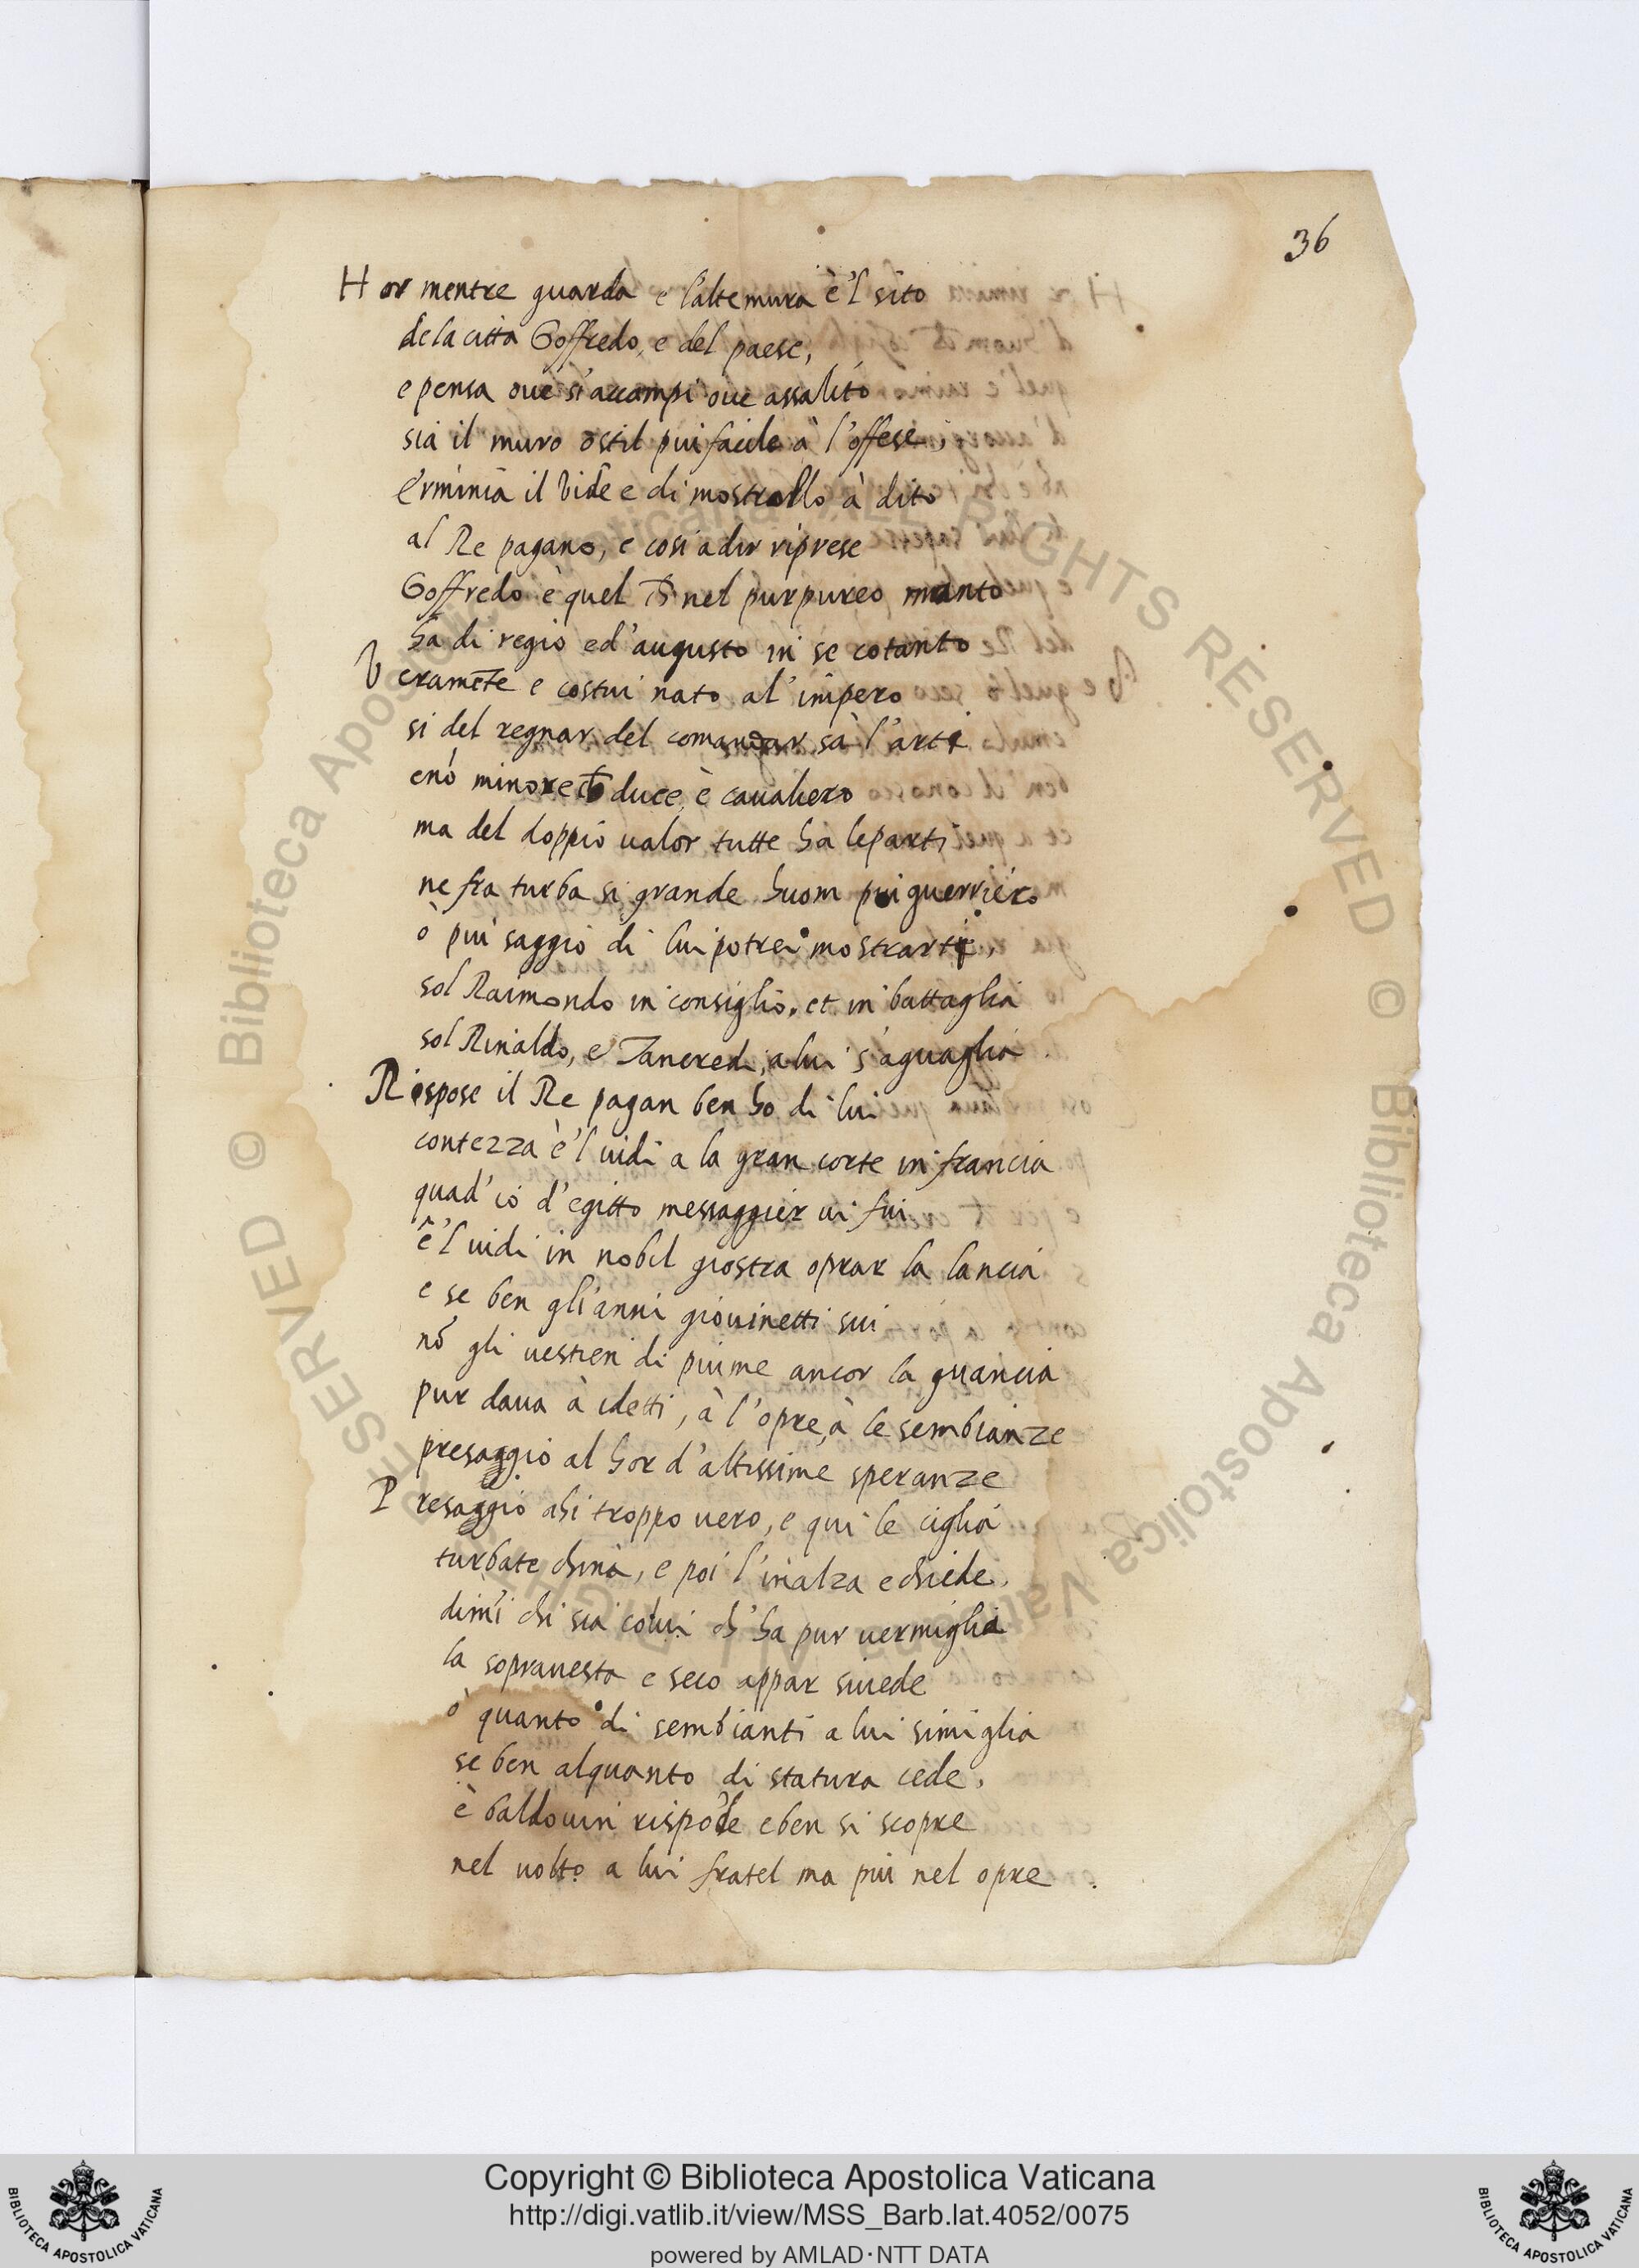 36
Hor mentre guarda e l'alte mura è 'l sito
de la citta Goffredo, e del paese,
e pensa oue si accampi oue assalito
sia il muro ostil piu facile à l'offese;
Erminia il vide e di mostrollo à dito
al Re pagano, e cosi a dir riprese
Goffredo è quel ch nel purpureo manto
ha di regio ed'augusto in se cotanto
Veramēte e costui nato al'impero
si del regnar del comandar sà l'arti
e nō minore ch duce è cavaliero
ma del doppio valor tutte ha le parti
ne fra turba si grande huom piu guerriero
ò piu saggio di lui potrei mostrarti,
sol Raimondo in consiglio, et in battaglia
sol Rinaldo, e Tancredi, a lui s'aguaglia
Rispose il Re pagan ben ho di lui
contezza è 'l uidi a la gran corte in francia
quād'io d'egitto messaggier ui fui
è 'l uidi in nobil giostra oprar la lancia
e se ben gli anni giouinetti sui
nō gli uestien di piume ancor la guancia
pur daua à i detti, à l'opre, à le sembianze
presaggio al hor d'altissime speranze
Presaggio ahi troppo uero, e qui le ciglia
turbate china, e poi l'inalza e chiede,
dimi chi sia colui ch'ha pur uermiglia
la soprauesta e seco appar si uede
ò quanto di sembianti a lui simiglia
se ben alquanto di statura cede,
è baldouin rispōde e ben si scopre
nel uolto a lui fratel ma piu nel opre.
Copyright © Biblioteca Apostolica Vaticana
http://digi.vatlib.it/view/MSS_Barb.lat.4052/0075
powered by AMLAD·NTT DATA
BIBLIOTECA APOSTOLICA VATICANA
BIBLIOTECA APOSTOLICA VATICANA